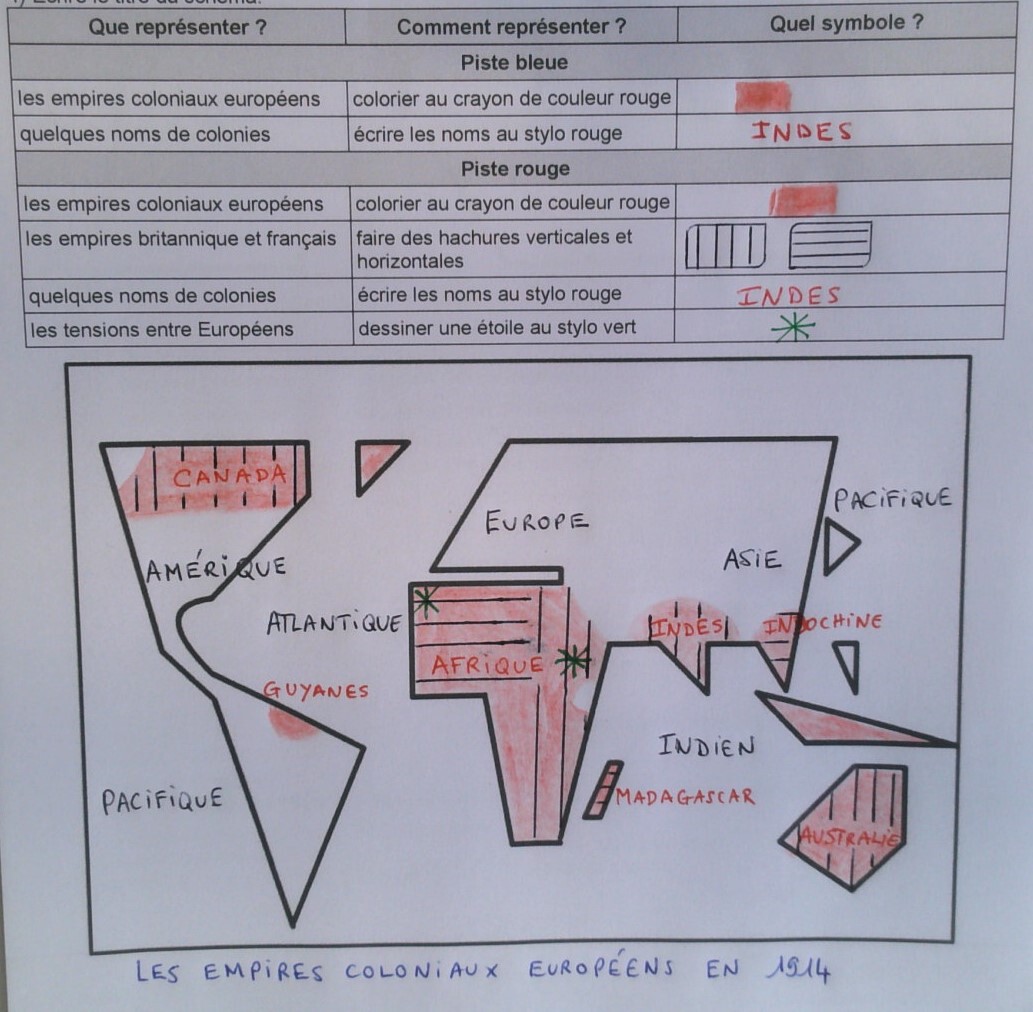 Que représenter ? Comment représenter ? Quel symbole ?
Piste bleue
les empires coloniaux européens colorier au crayon de couleur rouge
quelques noms de colonies écrire les noms au stylo rouge INDES
Piste rouge
les empires coloniaux européens colorier au crayon de couleur rouge
les empires britannique et français faire des hachures verticales et
horizontales
quelques noms de colonies écrire les noms au stylo rouge INDES
les tensions entre Européens dessiner une étoile au stylo vert
CANADA
PACIFIQUE
EUROPE
ASIE
AMÉRIQUE
ATLANTIQUE
INDES
INDOCHINE
AFRIQUE
GUYANES
INDIEN
PACIFIQUE
MADAGASCAR
AUSTRALIE
LES EMPIRES COLONIAUX EUROPÉENS EN 1914